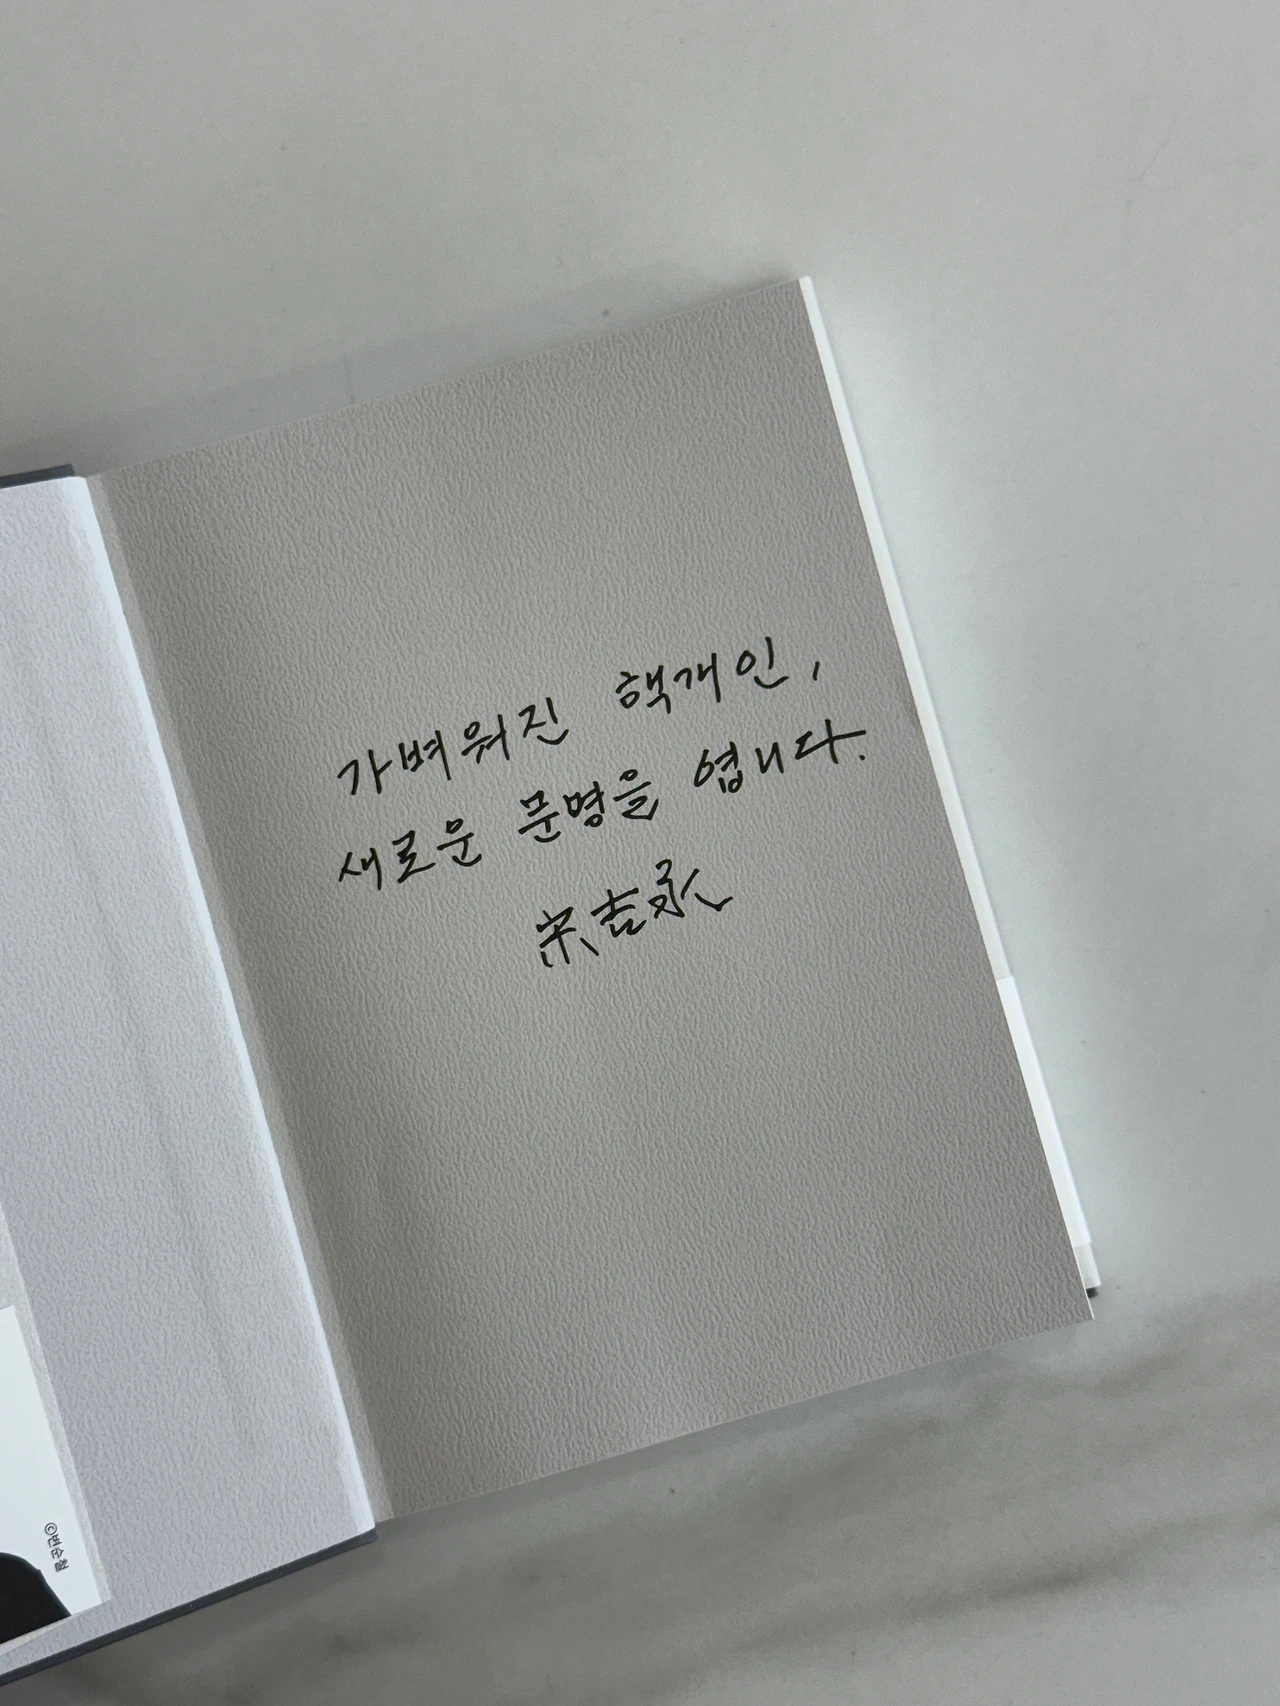 가벼워진 핵개인,
새로운 문명을 엽니다.
宋吉永
©변순철